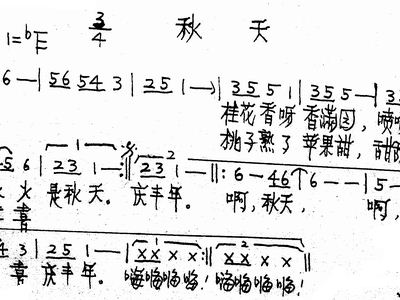 3/4 秋 天
1=ᵇE
6 — | 56 54 3 | 25 1 —→ | 35 5 1 | 35 5 — | 3
桂花香呀 香满园,
桃子熟了 苹果甜,
5 6 | 23 1 — :‖ 23 1 — ‖: 6 — 46 ↑ 6 — — | 5 —
火 是秋天。 庆丰年。 啊,秋天, 啊,
喜
3 | 25 1 — | X X X X :‖ X X X X ‖
喜 庆丰年。 嗨嗨嗨嗨! 嗨嗨嗨嗨!